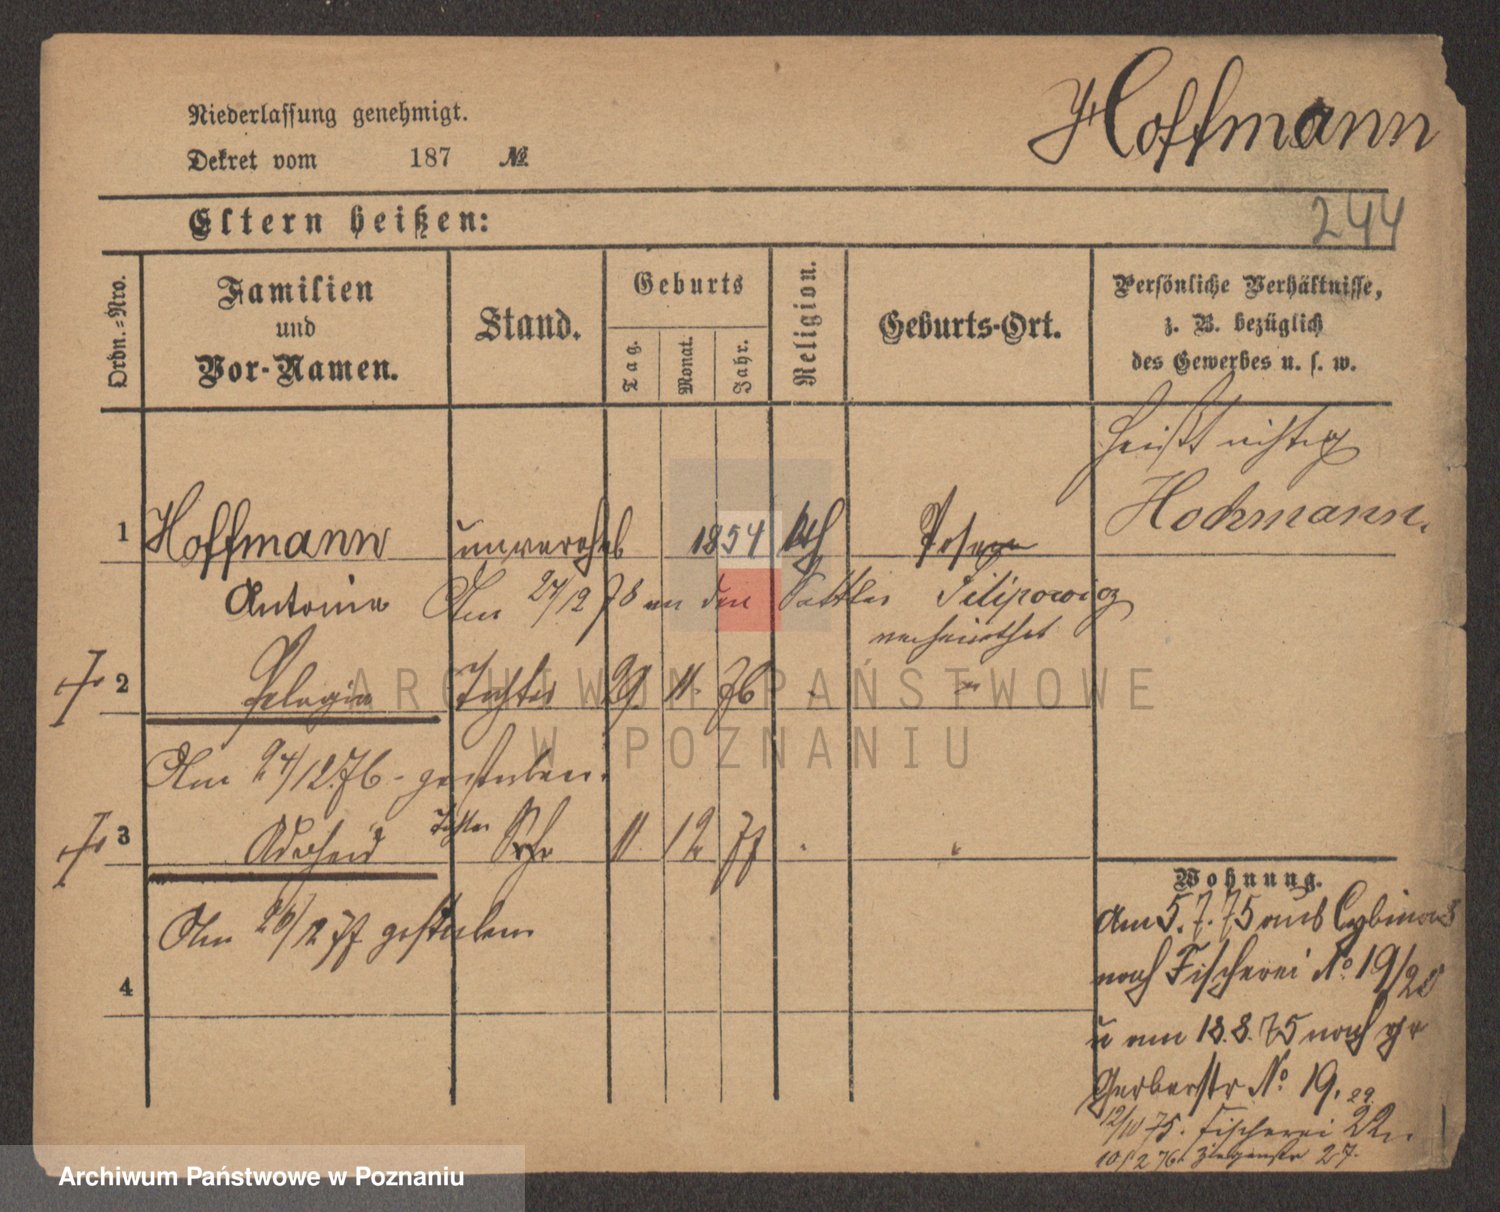 Hoffmann
Niederlassung genehmigt.
Dekret vom 187 №
244
Eltern heißen:
Ordn.-Nro.
Familien
und
Vor-Namen.
Stand.
Geburts
Tag.
Monat.
Jahr.
Religion.
Geburts-Ort.
Persönliche Verhältnisse,
z. B. bezüglich
des Gewerbes u. s. w.
heißt richtig
Hochmann.
1 Hoffmann unverehel 1854 kth Posen
Antonie Am 24/12 78 an den Sattler Filipowicz
verheirathet
2 Pelagia Tochter 29. 11. 76 - "
Am 24/12.76 - gestorben.
3 Adelheid Tochter 11 12 77
Am 26/12 77 gestorben
4
Wohnung.
Am 5.7.75 aus Cybina 8
nach Fischerei No 19/20
u am 18.8.75 nach gr
Gerberstr No. 19.
12/10 75. Fischerei 22.
10/2 76. Ziegenstr 27.
ARCHIWUM PAŃSTWOWE
W POZNANIU
Archiwum Państwowe w Poznaniu